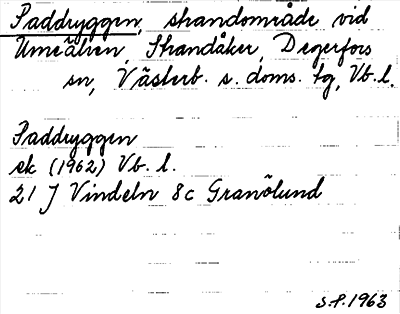 Paddryggen, strandområde vid
Umeälven, Strandåker, Degerfors
sn, Västerb. s. doms. tg, Vb. l.
Paddryggen
ek (1962) Vb. l.
21 J Vindeln 8c Granölund
S.P. 1963